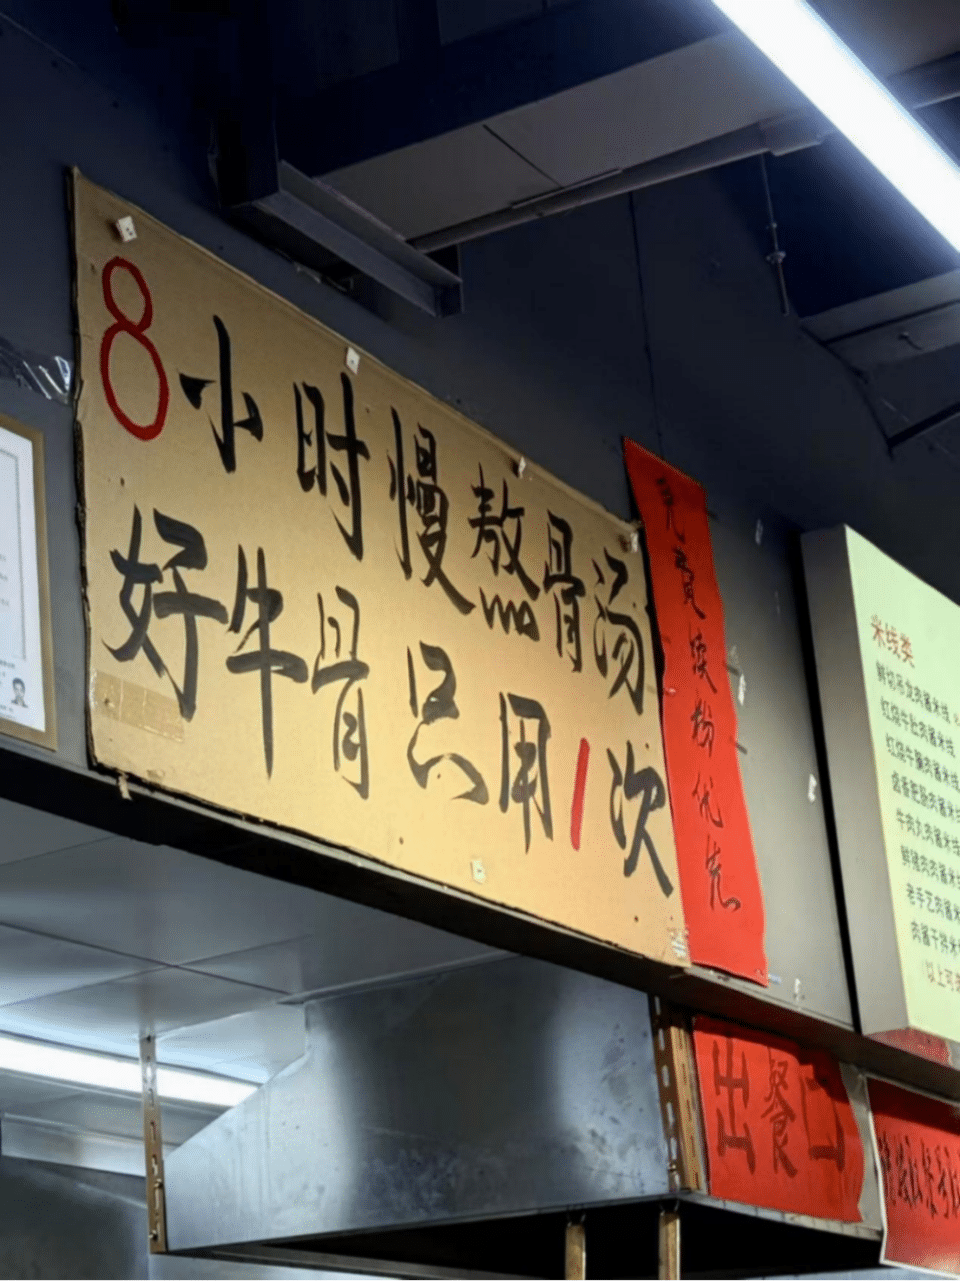 8小时慢熬骨汤
好牛骨只用1次
免费续粉优先
米线类
鲜切吊龙肉酱米线
红烧牛肚肉酱米线
红烧牛腩肉酱米线
卤香肥肠肉酱米线
牛肉丸肉酱米线
鲜猪肉肉酱米线
老手艺肉酱米
肉酱干拌米
(以上可
出餐口